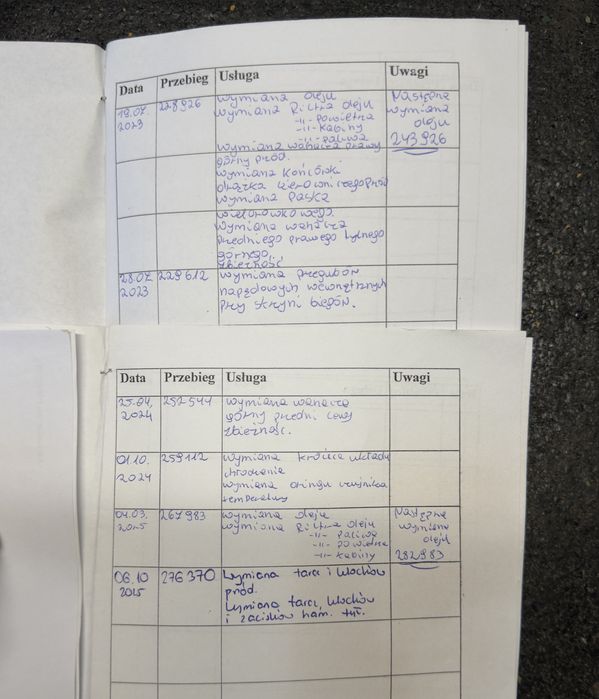 Data Przebieg Usługa Uwagi
19.07. 2023 228926
wymiana oleju
wymiana filtra oleju
-11- powietrza
-11- kabiny
-11- paliwa
wymiana wahacza prawy
górny przód.
wymiana końcówki
drążka kierowniczego przód
wymiana paska
wielorowkowego.
wymiana wahacza
przedniego prawego tylnego
górnego,
zbieżność
Następna
wymiana
oleju
243926
28.07 2023 229612
wymiana przegubów
napędowych wewnętrznych
przy skrzyni biegów.
Data Przebieg Usługa Uwagi
25.04. 2024 252544
wymiana wahacza
górny przedni lewy
zbieżność.
01.10. 2024 259112
wymiana króćca układu
chłodzenia
wymiana oringu czujnika
temperatury
04.03. 2025 267983
wymiana oleju
wymiana filtra oleju
-11- paliwa
-11- powietrza
-11- kabiny
Następna
wymiana
oleju
282983
06.10 2025 276370
Wymiana tarcz i klocków
przód.
Wymiana tarcz, klocków
i zacisków ham. tył.